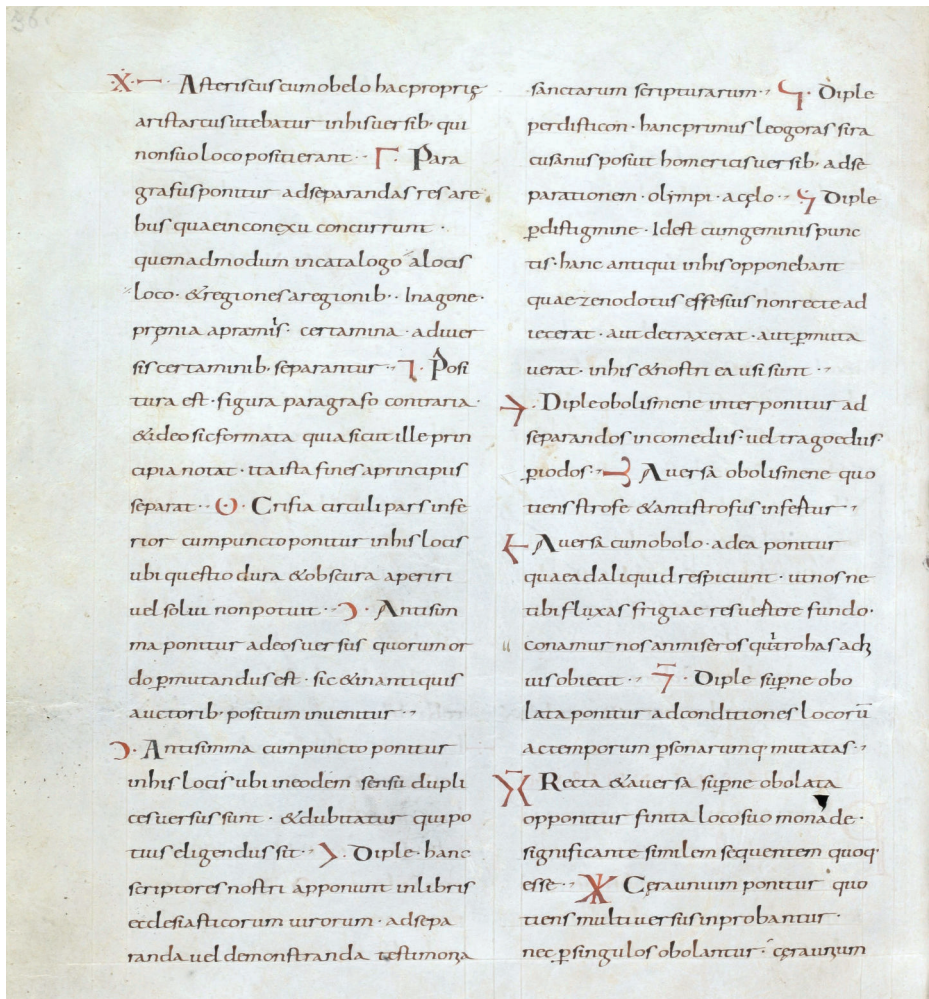 Asteriscus cum obelo hac proprię
aristarcus utebatur inhis uersib· qui
non suo loco positi erant·· Para
grafus ponitur ad separandas res are
bus quae in conexu concurrunt ·
quenadmodum in catalogo a locis
loco· & regiones a regionib·· In agone·
pręmia apramiis· certamina · adiuer
sis certaminib· separantur ·· Posi
tura est· figura paragrafo contraria·
& ideo sic formata quia sicut ille prin
cipia notat · ita ista fines a principiis
separat·· Crifia circuli pars infe
rior cum puncto ponitur in his locis
ubi questio dura & obscura aperiri
uel solui non potuit·· Antisim
ma ponitur ad eos uersus quorum or
do ꝑmutandus est · sic & in antiquis
auctorib· positum inuenitur ··
Antisimma cum puncto ponitur
in his locis ubi in eodem sensu dupli
ces uersus sunt · & dubitatur qui po
tius eligendus sit·· Diple· hanc
scriptores nostri apponunt in libris
ecclesiasticorum uirorum · ad sepa
randa uel demonstranda testimonia
sanctarum scripturarum·· Diple
perdisticon · hanc primus leogoras sira
cusanus posuit homericis uersib· ad se
parationem · olympi · a cęlo·· Diple
ꝑdistigmine · Id est cum geminis punc
tis· hanc antiqui in his opponebant
quae zenodotus effesius non recte ad
iecerat · aut detraxerat · aut ꝑmuta
uerat · in his & nostri ea usi sunt ··
Diple obolismene interponitur ad
separandos in comediis· uel tragoediis·
ꝑiodos·· Auersa obolismene quo
tiens strofe & antistrofus infertur ··
Auersa cum obolo · ad ea ponitur
quae ad aliquid respiciunt · ut nos ne
tibi fluxas frigiae res uertere fundo·
conamur nos an miseros qui trohas
uis obiecit ·· Diple suꝑne obo
lata ponitur ad conditiones locorū
ac temporum ꝑsonarumq· mutatas··
Recta & auersa suꝑne obolata
opponitur finita loco suo monade·
significante similem sequentem quoq·
esse·· Cęraunium ponitur quo
tiens multi uersus inprobantur·
nec ꝑ singulos obolantur· cęraunium